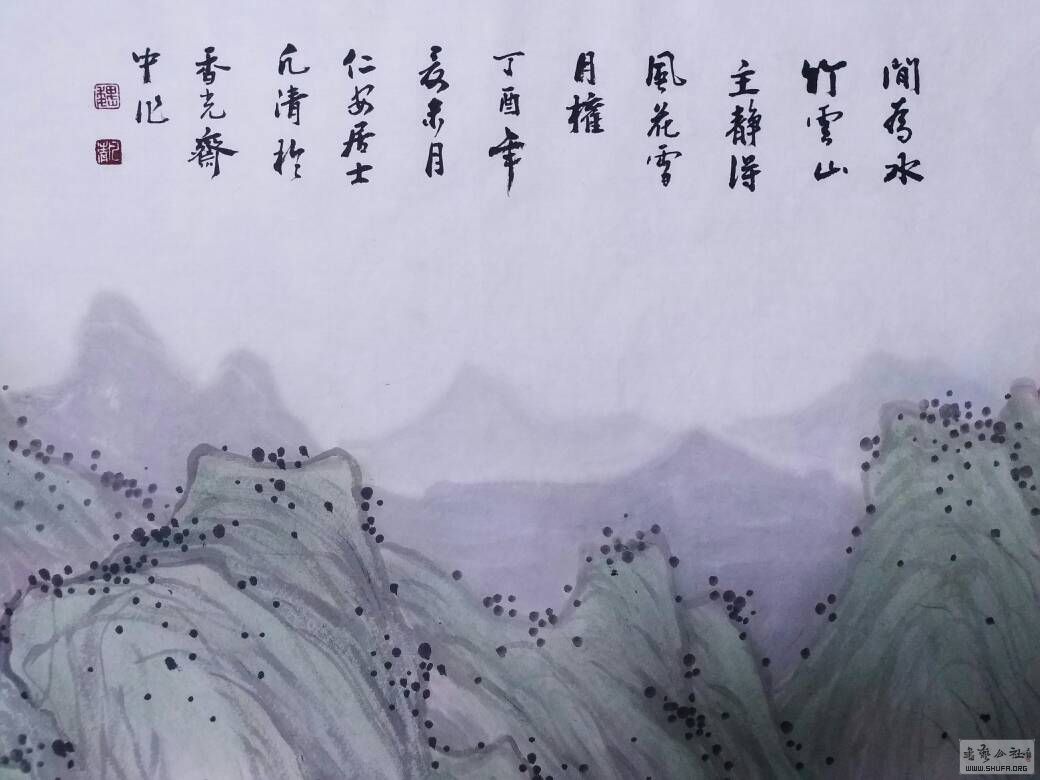 閒為水
竹雲山
主靜得
風花雪
月權
丁酉年
未月
仁安居士
凡清於
香光齋
中作
書藝公社
WWW.SHUFA.ORG